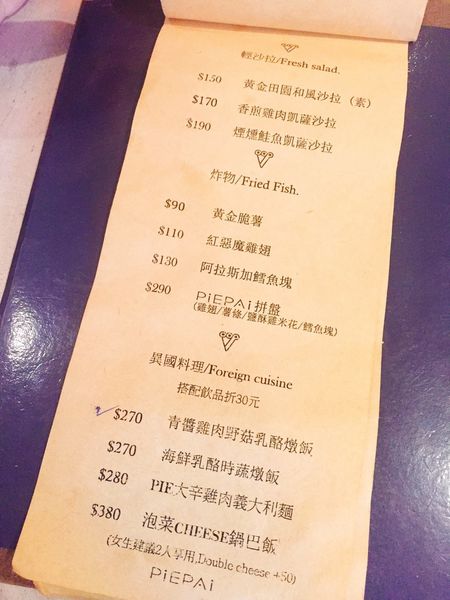 輕沙拉/Fresh salad.
$150 黃金田園和風沙拉（素）
$170 香煎雞肉凱薩沙拉
$190 煙燻鮭魚凱薩沙拉
炸物/Fried Fish.
$90 黃金脆薯
$110 紅惡魔雞翅
$130 阿拉斯加鱈魚塊
$290 PiEPAi拼盤
(雞翅/薯條/鹽酥雞米花/鱈魚塊)
異國料理/Foreign cuisine
搭配飲品折30元
$270 青醬雞肉野菇乳酪燉飯
$270 海鮮乳酪時蔬燉飯
$280 PIE大辛雞肉義大利麵
$380 泡菜CHEESE鍋巴飯
(女生建議2人享用,Double cheese +50)
PiEPAi